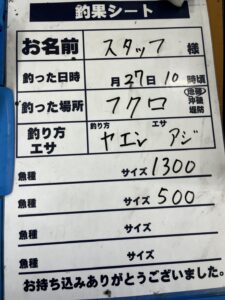 釣果シート
お名前 スタッフ 様
釣った日時 月27日10時頃
釣った場所 フクロ 地磯 沖磯 堤防
釣り方 エサ 釣り方 ヤエン エサ アジ
魚種 サイズ 1300
魚種 サイズ 500
魚種 サイズ
魚種 サイズ
お持ち込みありがとうございました。